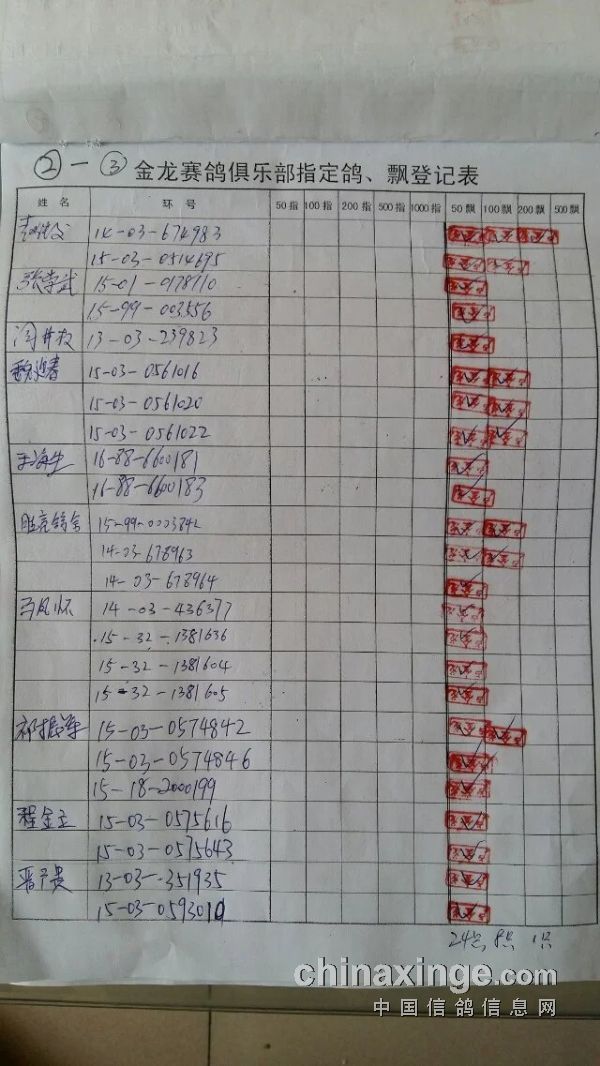 ②-③ 金龙赛鸽俱乐部指定鸽、飘登记表
姓名 环号 50指 100指 200指 500指 1000指 50飘 100飘 200飘 500飘
14-03-674983
15-03-0514695
张学武 15-01-0178710
15-99-003556
13-03-239823
15-03-0561016
15-03-0561020
15-03-0561022
王海生 16-88-6600181
16-88-6600183
15-99-0003842
14-03-678963
14-03-678964
马凤怀 14-03-436377
15-32-1381636
15-32-1381604
15-32-1381605
祁振海 15-03-0574842
15-03-0574846
15-18-2000199
程金立 15-03-0575616
15-03-0575643
13-03-351935
15-03-0593010
24只 8只 1只
chinaxinge.com
中国信鸽信息网